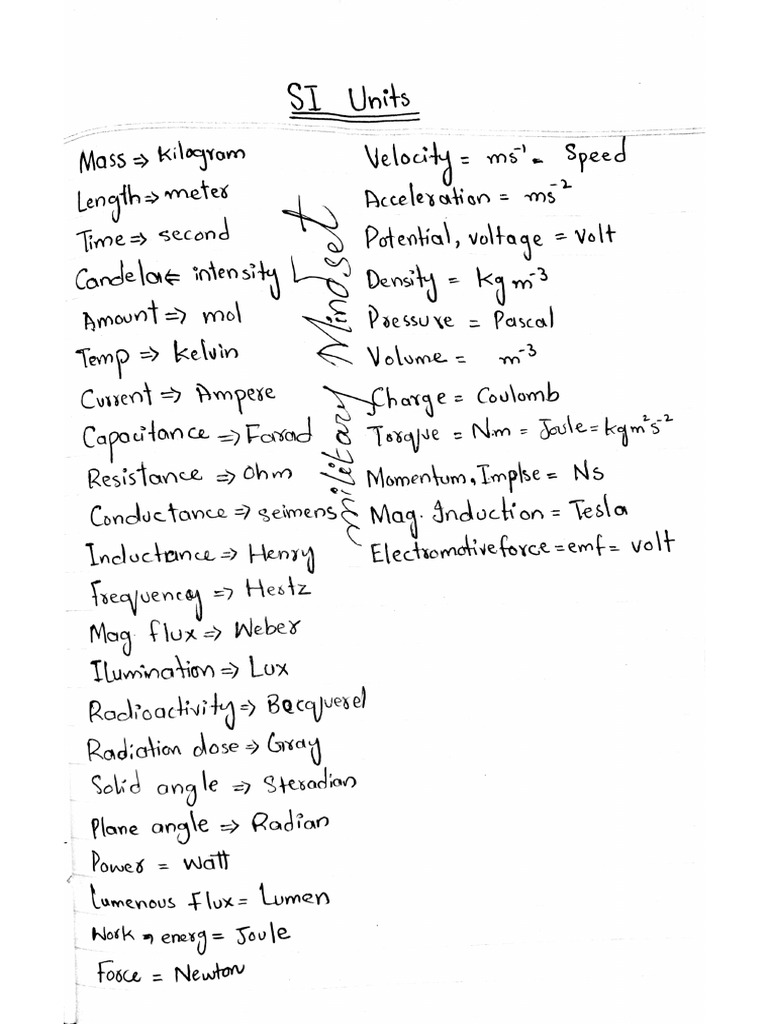 SI Units
Mass ⇒ Kilogram
Length ⇒ meter
Time ⇒ second
Candela ⇐ intensity
Amount ⇒ mol
Temp ⇒ Kelvin
Current ⇒ Ampere
Capacitance ⇒ Farad
Resistance ⇒ Ohm
Conductance ⇒ seimens
Inductance ⇒ Henry
Frequency ⇒ Hertz
Mag. flux ⇒ Weber
Ilumination ⇒ Lux
Radioactivity ⇒ Becquerel
Radiation dose ⇒ Gray
Solid angle ⇒ Steradian
Plane angle ⇒ Radian
Power = Watt
Lumenous flux = Lumen
Work ⇒ energ = Joule
Force = Newton
military Mindset
Velocity = ms⁻¹ = Speed
Acceleration = ms⁻²
Potential, voltage = Volt
Density = Kg m⁻³
Pressure = Pascal
Volume = m⁻³
Charge = Coulomb
Torque = N.m = Joule = kgm²s⁻²
Momentum, Implse = Ns
Mag. Induction = Tesla
Electromotive force = emf = volt